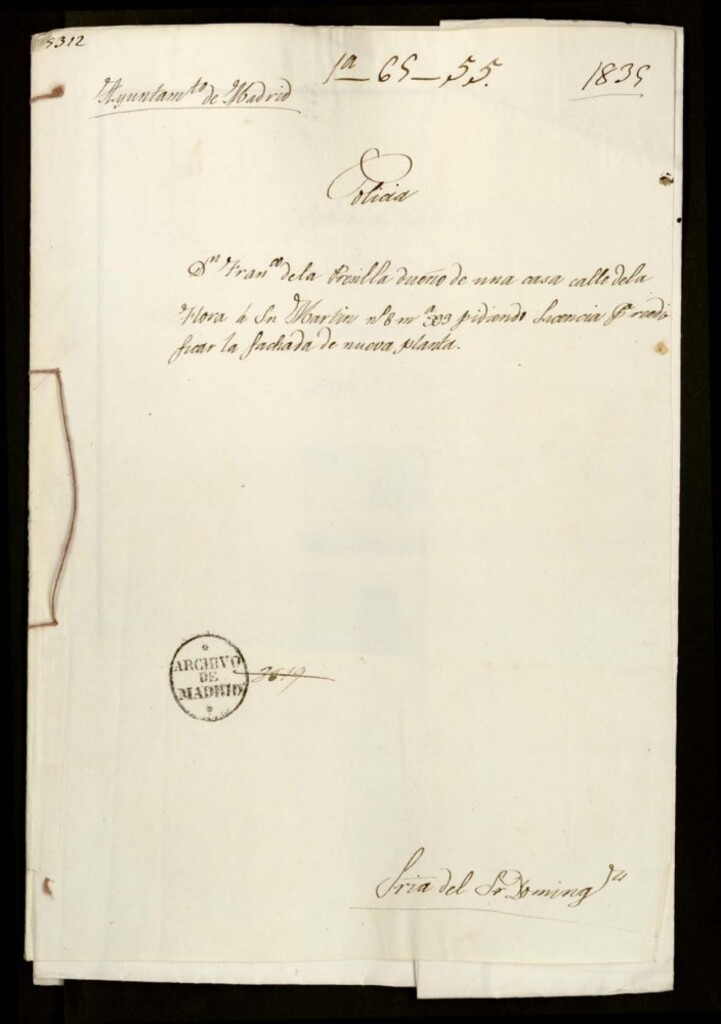 5312
1ª-65-55.
1835
Ayuntamto de Madrid
Policia
Dn Franco de la Presilla dueño de una casa calle dela
Flora á Sn Martin nº 8 mª 393 pidiendo licencia pª reedi
ficar la fachada de nueva planta.
ARCHIVO
DE
MADRID
Sria del Sr Doming